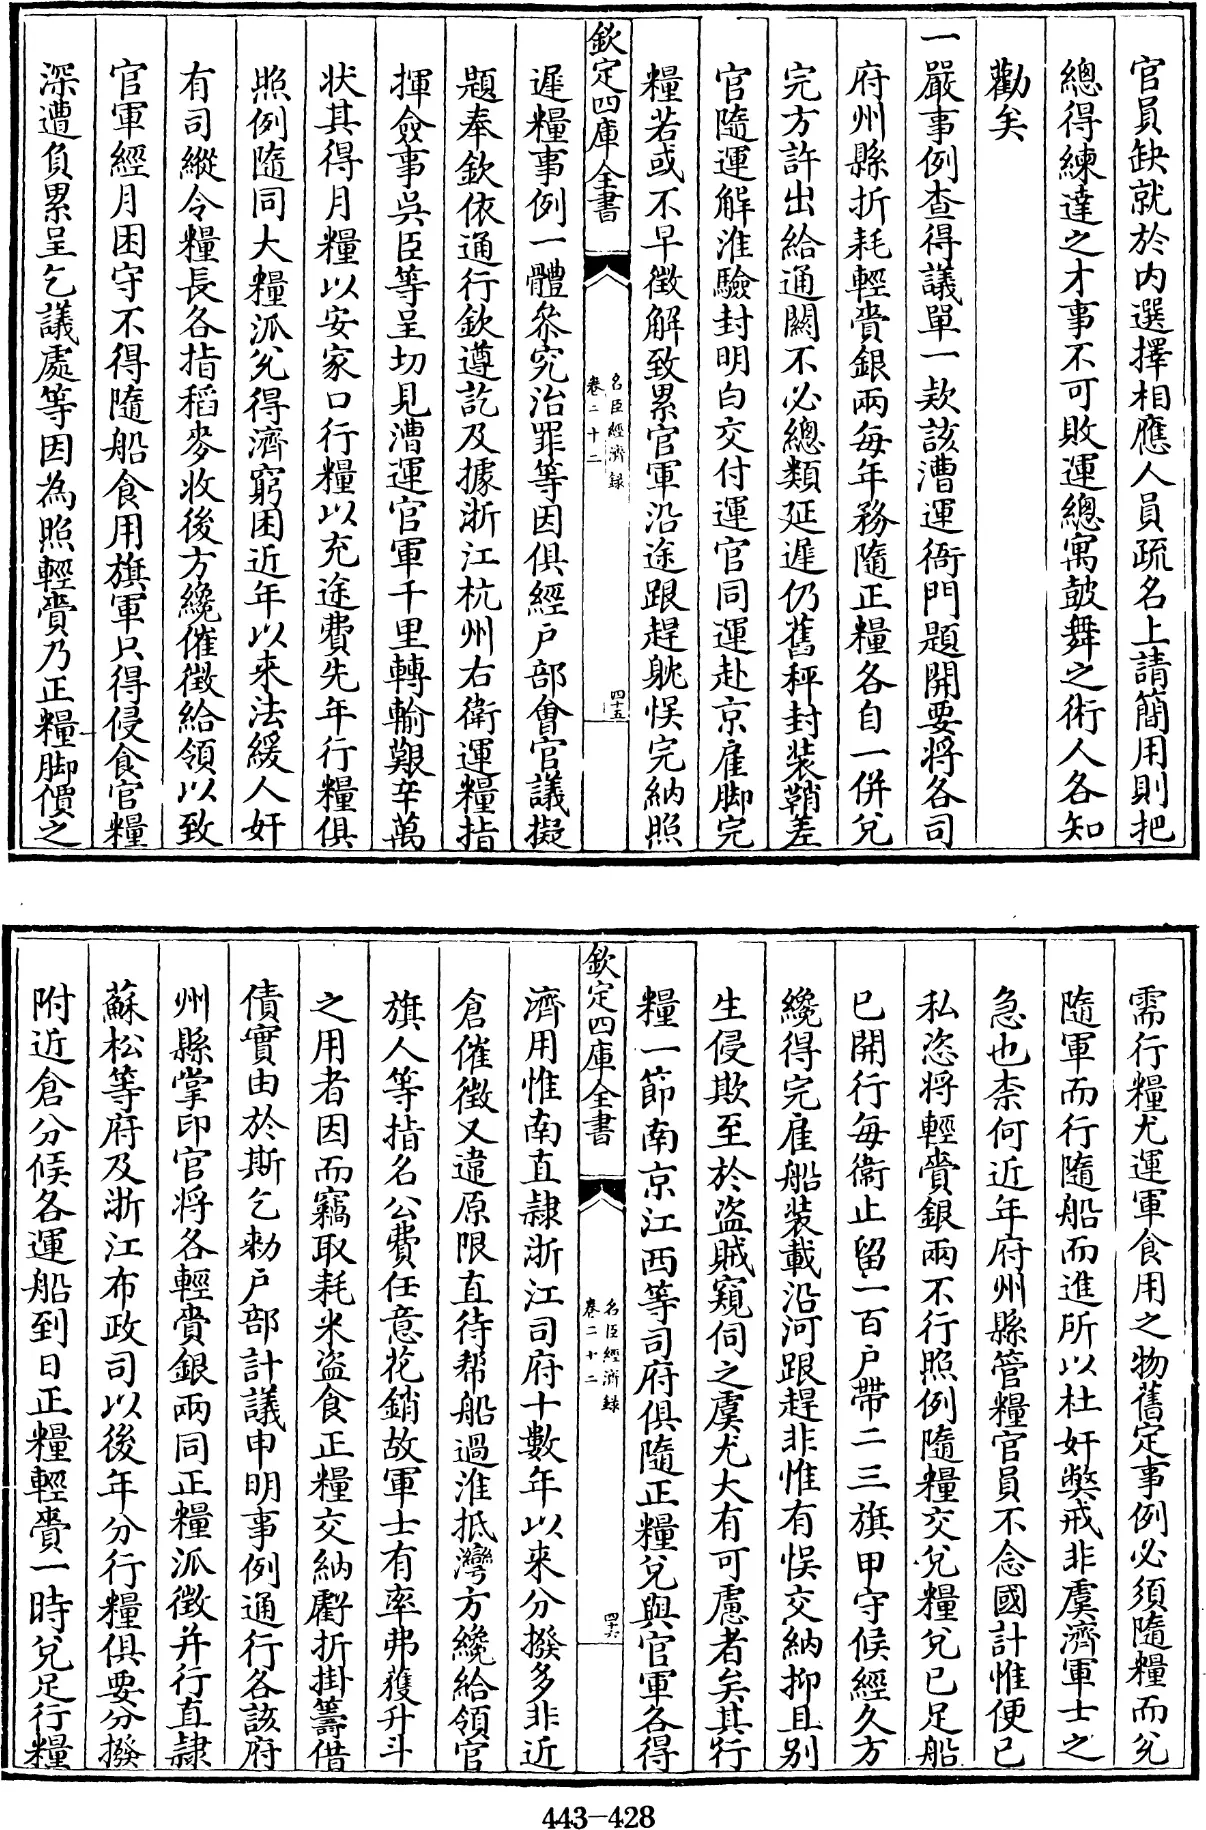 官員缺就於内選擇相應人員疏名上請簡用則把
總得練達之才事不可敗運總寓鼓舞之術人各知
勸矣
一嚴事例查得議單一款該漕運衙門題開要将各司
府州縣折耗輕賫銀兩每年務隨正糧各自一併兌
完方許出給通關不必總類延遲仍舊秤封裝鞘差
官隨運解淮驗封明白交付運官同運赴京雇脚完
糧若或不早徵解致累官軍沿途跟趕躭悮完納照
欽定四庫全書
名臣經濟録
卷二十二
四十五
遲糧事例一體叅究治罪等因俱經户部會官議擬
題奉欽依通行欽遵訖及據浙江杭州右衛運糧指
揮僉事吳臣等呈切見漕運官軍千里轉輸艱辛萬
状其得月糧以安家口行糧以充途費先年行糧俱
照例隨同大糧派兌得濟窮困近年以来法緩人奸
有司縱令糧長各指稻麥收後方纔催徵給領以致
官軍經月困守不得隨船食用旗軍只得侵食官糧
深遭負累呈乞議處等因為照輕賫乃正糧脚價之
需行糧尤運軍食用之物舊定事例必須隨糧而兌
隨軍而行隨船而進所以杜奸獘戒非虞濟軍士之
急也柰何近年府州縣管糧官員不念國計惟便己
私恣将輕賫銀兩不行照例隨糧交兌糧兌已足船
已開行每衛止留一百户帶二三旗甲守候經久方
纔得完雇船裝載沿河跟趕非惟有悮交納抑且别
生侵欺至於盗賊窺伺之虞尤大有可慮者矣其行
糧一節南京江西等司府俱隨正糧兌與官軍各得
欽定四庫全書
名臣經濟録
卷二十二
四十六
濟用惟南直隷浙江司府十數年以来分撥多非近
倉催徵又違原限直待帮船過淮抵灣方纔給領官
旗人等指名公費任意花銷故軍士有率弗獲升斗
之用者因而竊取耗米盗食正糧交納虧折掛籌借
債實由於斯乞勅户部計議申明事例通行各該府
州縣掌印官将各輕賫銀兩同正糧派徵并行直隷
蘇松等府及浙江布政司以後年分行糧俱要分撥
附近倉分候各運船到日正糧輕賫一時兌足行糧
443-428